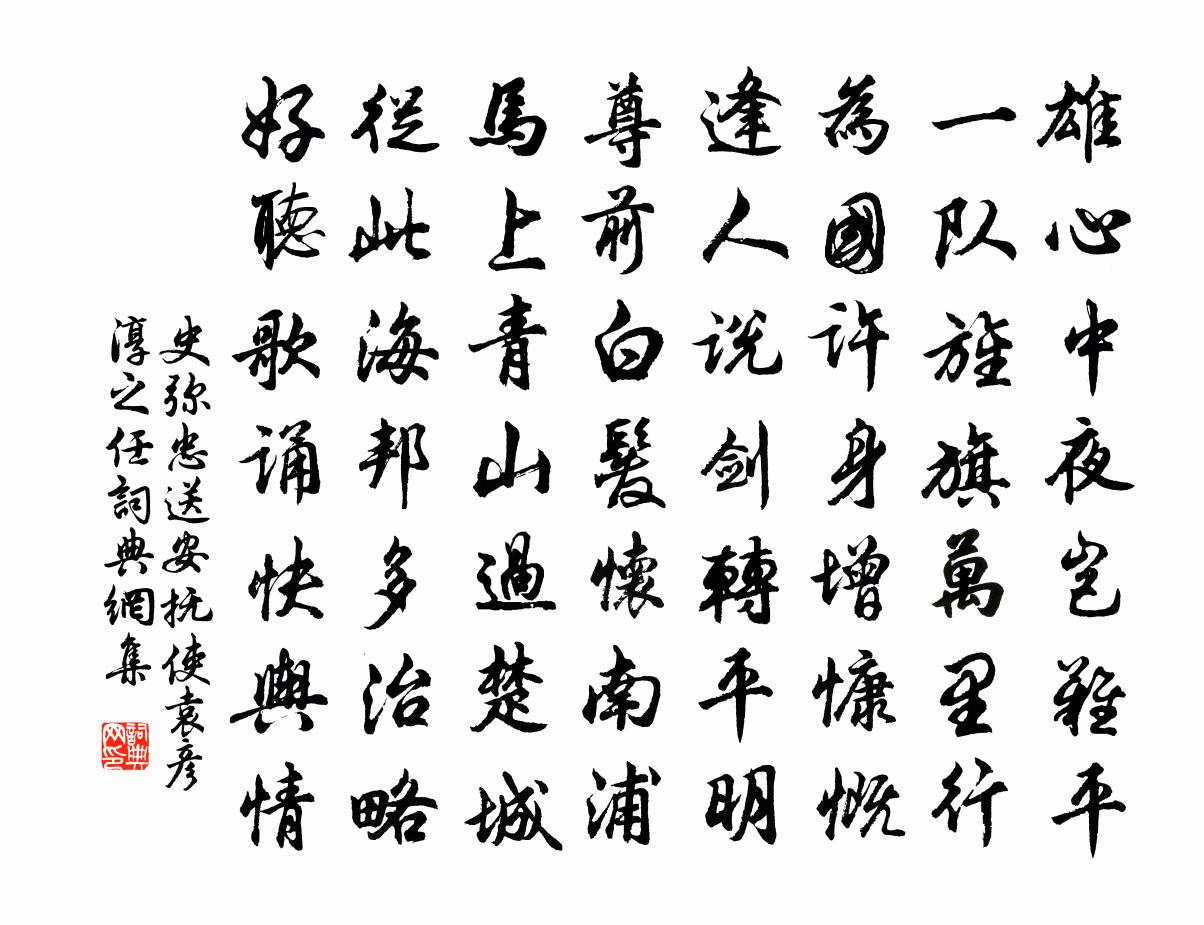 雄心中夜岂難平
一队旌旗萬里行
為國許身增慷慨
逢人説劍轉平明
尊前白髮懷南浦
馬上青山過楚城
從此海邦多治略
好聽歌誦快輿情
史弥忠送安抚使袁彦
淳之任詞典網集
詞典
网印